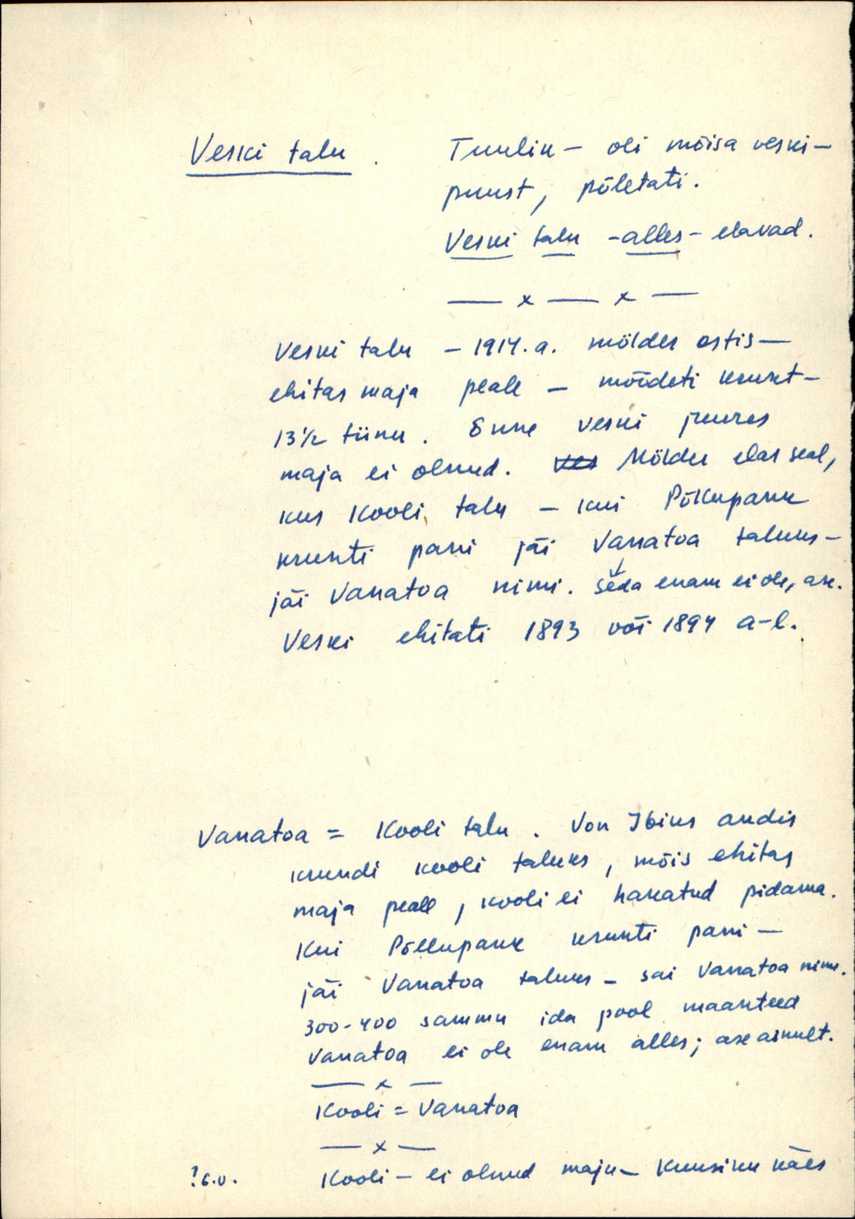 Veski talu. Tuulik – oli mõisa veski –
puust, põletati.
Veski talu – alles – elavad.
— x — x —
Veski talu – 1914. a. mölder ostis –
ehitas maja peale – mõõdeti krunt –
13 1/2 tiinu. Enne veski juures
maja ei olnud. Ves Mölder elas seal,
kus Kooli talu – kui Põllupank
krunti pani jäi Vanatoa taluks –
jäi Vanatoa nimi. Seda enam ei ole, ase.
Veski ehitati 1893 või 1894 a-l.
Vanatoa = Kooli talu. Von Ibius andis
krundi kooli taluks, mõis ehitas
maja peale, kooli ei hakatud pidama.
Kui Põllupank krunti pani –
jäi Vanatoa taluks – sai Vanatoa nime.
300-400 sammu ida pool maanteed
Vanatoa ei ole enam alles; ase ainult.
— x —
Kooli = Vanatoa
— x —
Kooli – ei olnud maju – Kuusiku käes